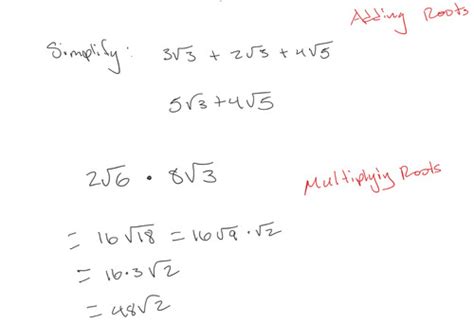 Adding Roots
Simplify: 3√3 + 2√3 + 4√5
5√3 + 4√5
2√6 • 8√3
Multiplyig Roots
= 16√18 = 16√9 · √2
= 16·3√2
= 48√2